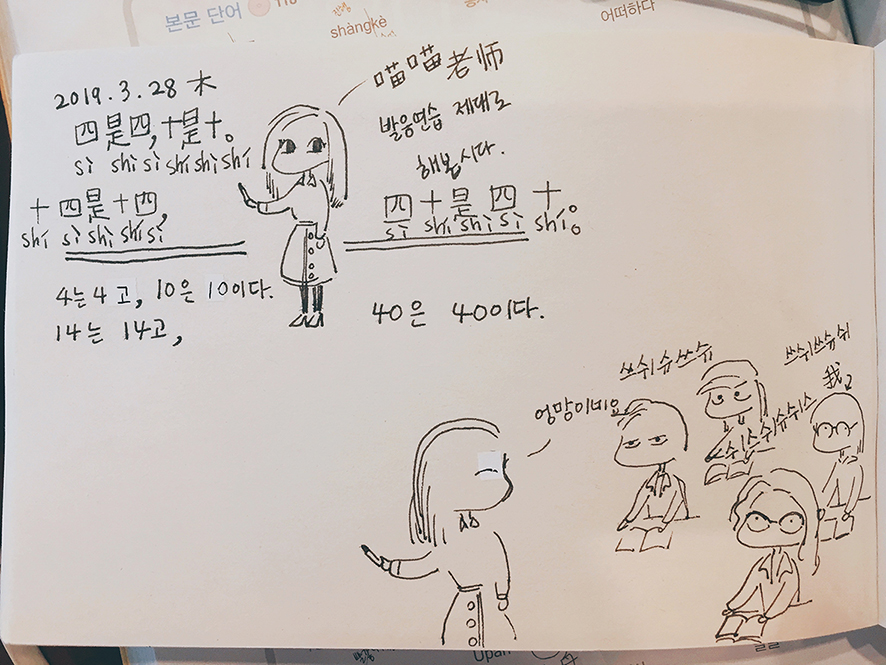 본문 단어
shàngkè
어떠하다
2019.3.28 木
喵喵老师
四是四,十是十。
sì shì sì shí shì shí
발음연습 제대로
해봅시다.
十四是十四,
shí sì shì shí sì
四十是四十
sì shí shì sì shí。
4는 4고, 10은 10이다.
14는 14고,
40은 40이다.
쓰쉬슈쓰쉬
쓰쉬쓰슈쉬
我
엉망이네요